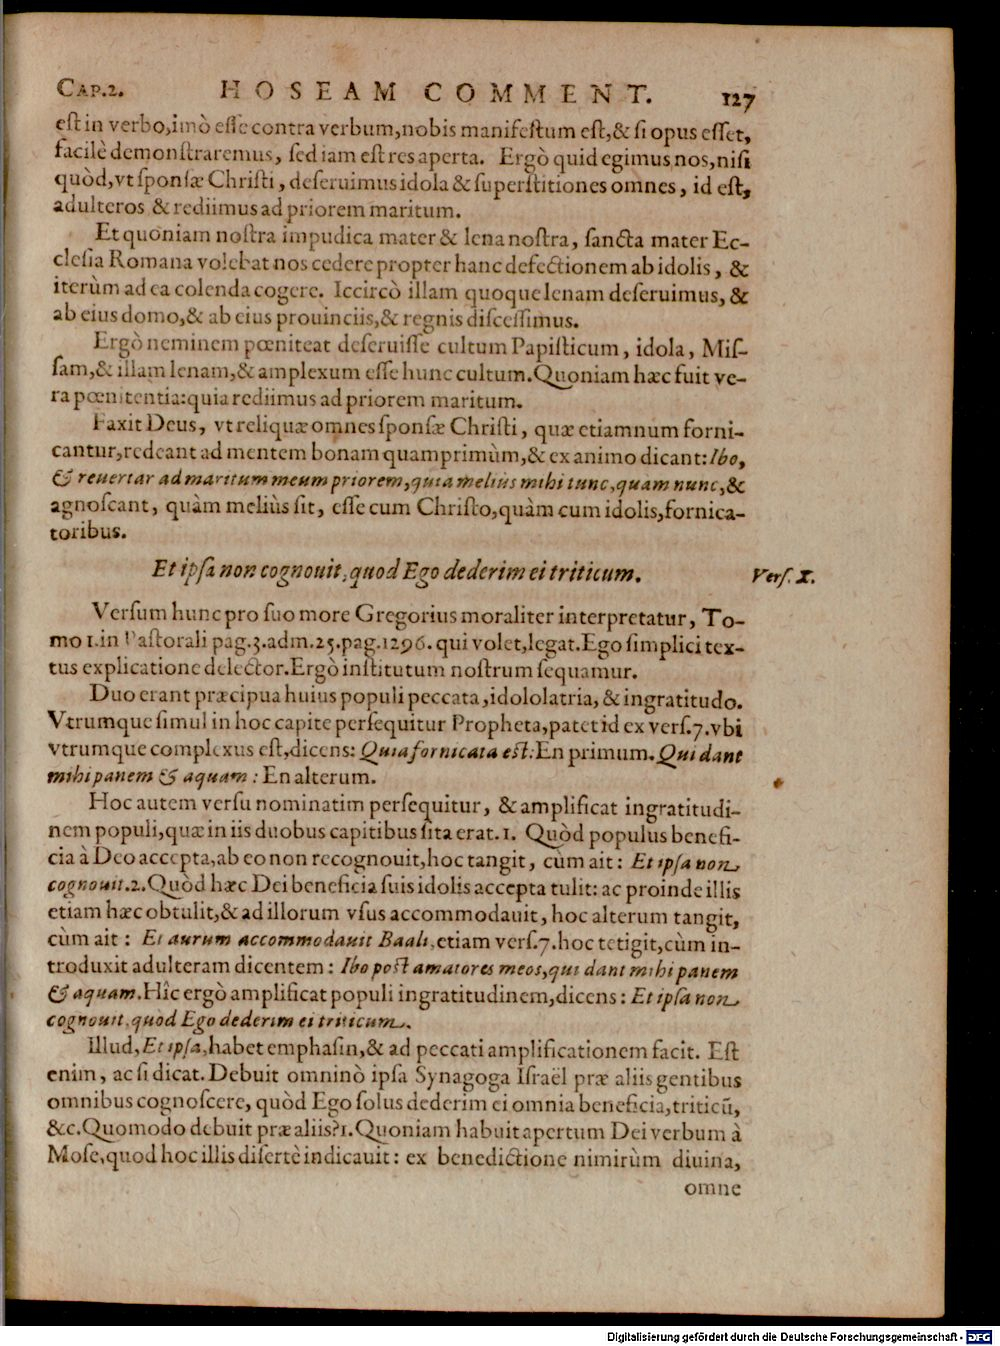 CAP.2. HOSEAM COMMENT. 127
eſt in verbo, imò eſſe contra verbum, nobis manifeſtum eſt, & ſi opus eſſet,
facilè demonſtraremus, ſed iam eſt res aperta. Ergò quid egimus nos, niſi
quòd, vt ſponſæ Chriſti, deſeruimus idola & ſuperſtitiones omnes, id eſt,
adulteros & rediimus ad priorem maritum.
Et quoniam noſtra impudica mater & lena noſtra, ſancta mater Ec-
cleſia Romana volebat nos cedere propter hanc defectionem ab idolis, &
iterùm ad ea colenda cogere. Iccircò illam quoque lenam deſeruimus, &
ab eius domo, & ab eius prouinciis, & regnis diſceſſimus.
Ergò neminem pœniteat deſeruiſſe cultum Papiſticum, idola, Miſ-
ſam, & illam lenam, & amplexum eſſe hunc cultum. Quoniam hæc fuit ve-
ra pœnitentia: quia rediimus ad priorem maritum.
Faxit Deus, vt reliquæ omnes ſponſæ Chriſti, quæ etiamnum forni-
cantur, redeant ad mentem bonam quamprimùm, & ex animo dicant: Ibo,
& reuertar ad maritum meum priorem, quia meliùs mihi tunc, quam nunc, &
agnoſcant, quàm meliùs ſit, eſſe cum Chriſto, quàm cum idolis, fornica-
toribus.
Et ipſa non cognouit, quod Ego dederim ei triticum. Verſ. 8.
Verſum hunc pro ſuo more Gregorius moraliter interpretatur, To-
mo 1. in Paſtorali pag. 3. adm. 25. pag. 1296. qui volet, legat. Ego ſimplici tex-
tus explicatione delector. Ergò inſtitutum noſtrum ſequamur.
Duo erant præcipua huius populi peccata, idololatria, & ingratitudo.
Vtrumque ſimul in hoc capite perſequitur Propheta, patet id ex verſ. 7. vbi
vtrumque complexus eſt, dicens: Quia fornicata eſt: En primum. Qui dant
mihi panem & aquam: En alterum.
Hoc autem verſu nominatim perſequitur, & amplificat ingratitudi-
nem populi, quæ in iis duobus capitibus ſita erat. 1. Quòd populus benefi-
cia à Deo accepta, ab eo non recognouit, hoc tangit, cùm ait: Et ipſa non
cognouit. 2. Quòd hæc Dei beneficia ſuis idolis accepta tulit: ac proinde illis
etiam hæc obtulit, & ad illorum vſus accommodauit, hoc alterum tangit,
cùm ait: Et aurum accommodauit Baali, etiam verſ. 7. hoc tetigit, cùm in-
troduxit adulteram dicentem: Ibo poſt amatores meos, qui dant mihi panem
& aquam. Hîc ergò amplificat populi ingratitudinem, dicens: Et ipſa non
cognouit, quòd Ego dederim ei triticum.
Illud, Et ipſa, habet emphaſin, & ad peccati amplificationem facit. Eſt
enim, ac ſi dicat. Debuit omninò ipſa Synagoga Iſraël præ aliis gentibus
omnibus cognoſcere, quòd Ego ſolus dederim ei omnia beneficia, triticū,
&c. Quomodo debuit præ aliis? 1. Quoniam habuit apertum Dei verbum à
Moſe, quod hoc illis diſertè indicauit: ex benedictione nimirùm diuina,
omne
Digitalisierung gefördert durch die Deutsche Forschungsgemeinschaft - DFG